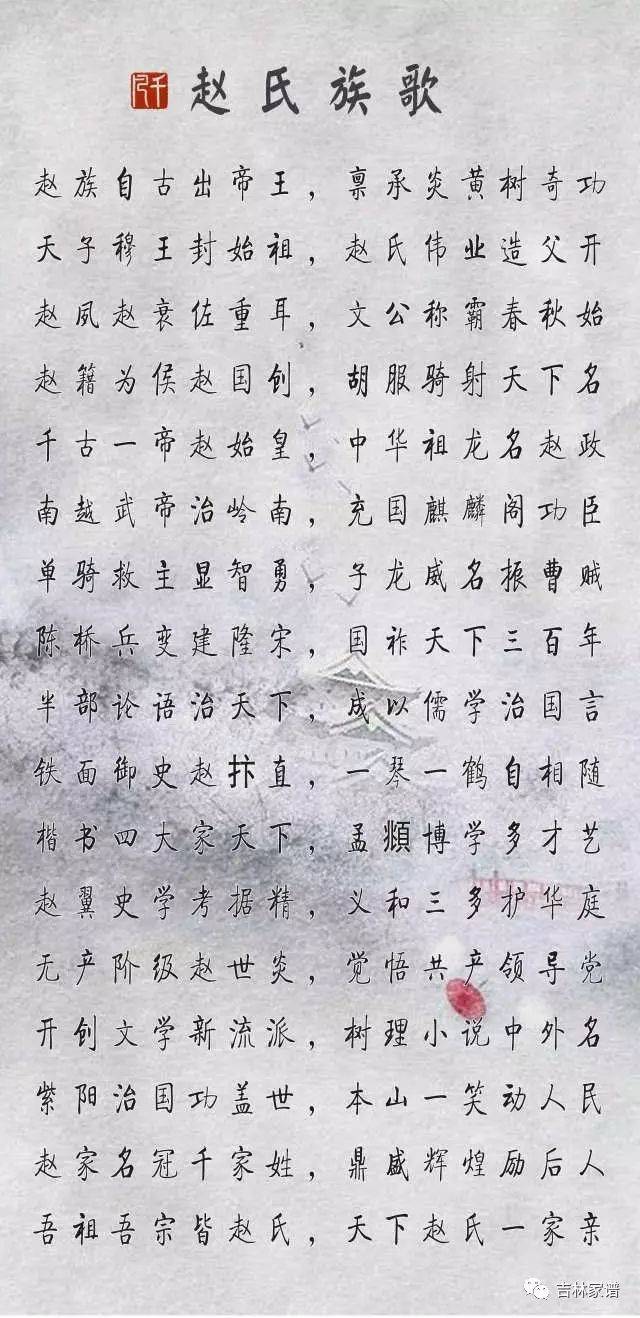 赵氏族歌
赵族自古出帝王，禀承炎黄树奇功
天子穆王封始祖，赵氏伟业造父开
赵夙赵衰佐重耳，文公称霸春秋始
赵籍为侯赵国创，胡服骑射天下名
千古一帝赵始皇，中华祖龙名赵政
南越武帝治岭南，充国麒麟阁功臣
单骑救主显智勇，子龙威名振曹贼
陈桥兵变建隆宋，国祚天下三百年
半部论语治天下，成以儒学治国言
铁面御史赵抃直，一琴一鹤自相随
楷书四大家天下，孟頫博学多才艺
赵翼史学考据精，义和三多护华庭
无产阶级赵世炎，觉悟共产领导党
开创文学新流派，树理小说中外名
紫阳治国功盖世，本山一笑动人民
赵家名冠千家姓，鼎盛辉煌励后人
吾祖吾宗皆赵氏，天下赵氏一家亲
吉林家谱